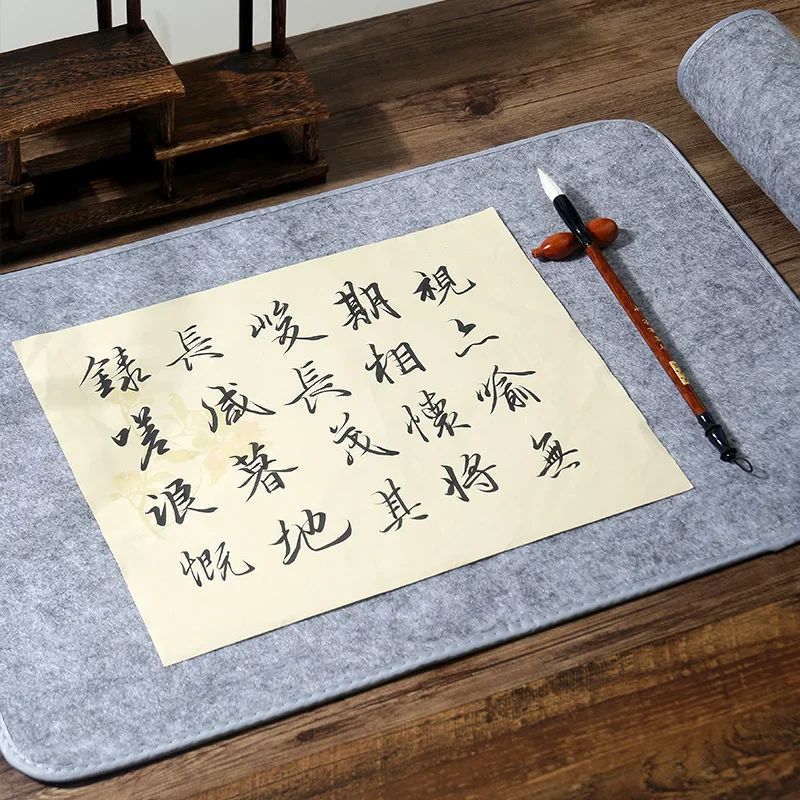 視亦喻無
期相懷將
峻長茂其
長咸暮地
錄嗟浪慨